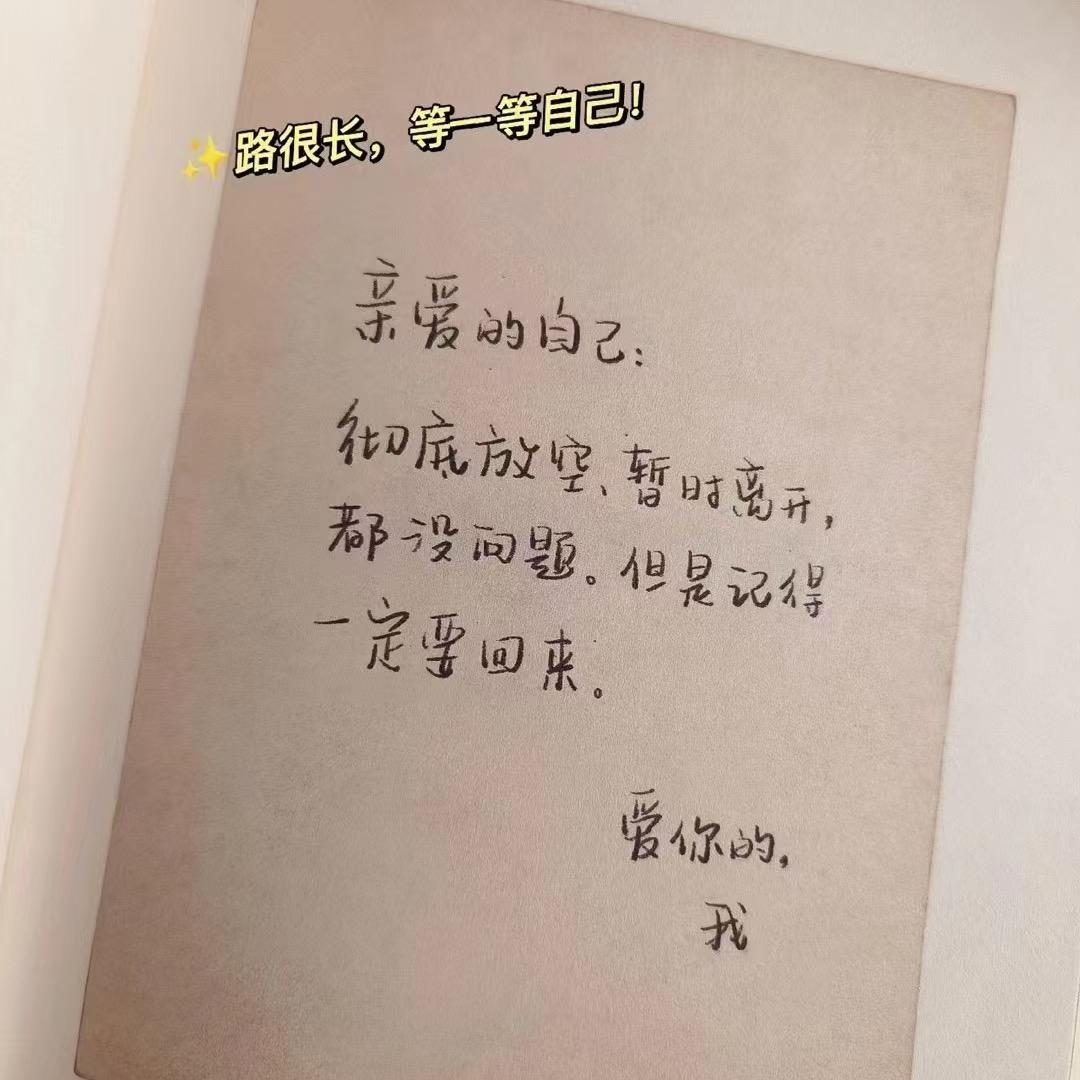 ✨路很长，等一等自己！
亲爱的自己：
彻底放空、暂时离开，
都没问题。但是记得
一定要回来。
爱你的，
我